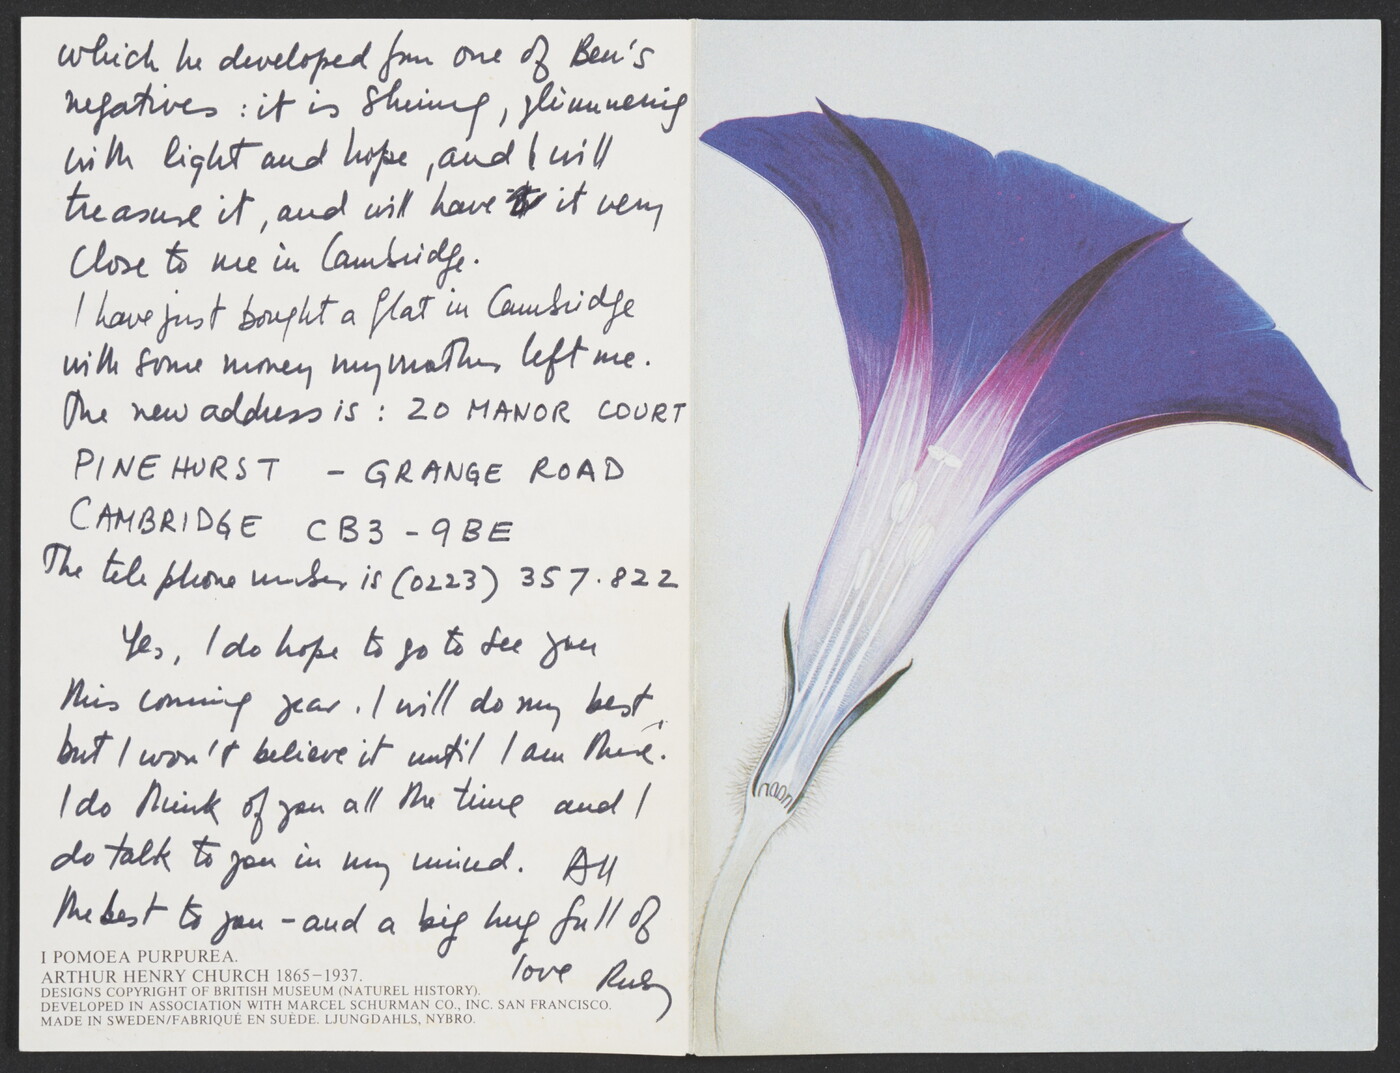 which he developed from one of Ben's
negatives : it is shining, glimmering
with light and hope, and I will
treasure it, and will have it very
close to me in Cambridge.
I have just bought a flat in Cambridge
with some money my mother left me.
The new address is : 20 MANOR COURT
PINEHURST – GRANGE ROAD
CAMBRIDGE CB3 - 9BE
The telephone number is (0223) 357.822
Yes, I do hope to go to see you
this coming year. I will do my best
but I won't believe it until I am there.
I do think of you all the time and I
do talk to you in my mind. All
the best to you - and a big hug full of
love Ruby
I POMOEA PURPUREA.
ARTHUR HENRY CHURCH 1865–1937.
DESIGNS COPYRIGHT OF BRITISH MUSEUM (NATUREL HISTORY).
DEVELOPED IN ASSOCIATION WITH MARCEL SCHURMAN CO., INC. SAN FRANCISCO.
MADE IN SWEDEN/FABRIQUÉ EN SUÈDE. LJUNGDAHLS, NYBRO.